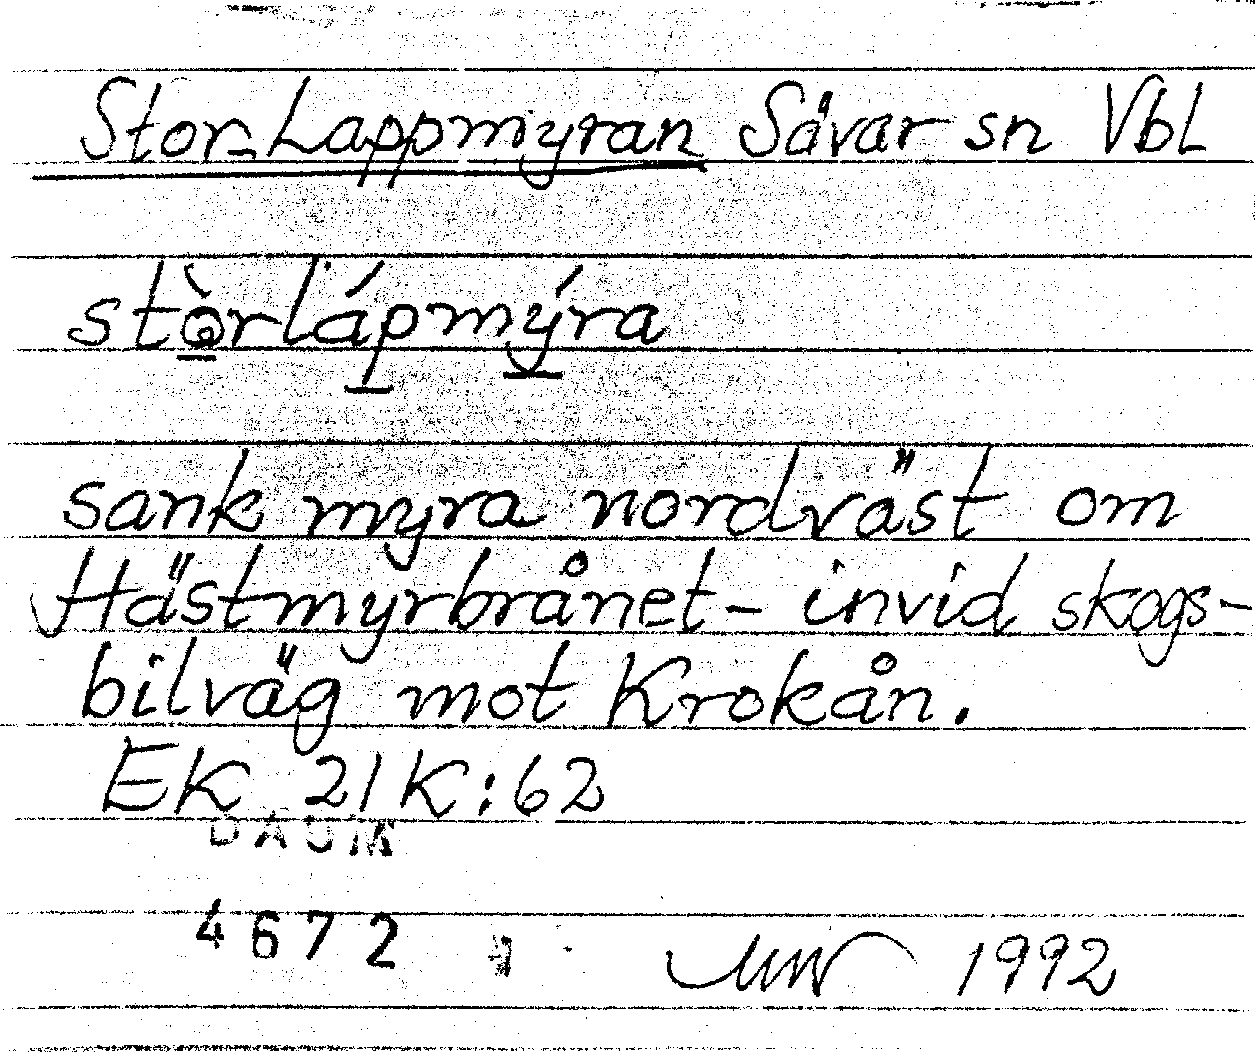 Stor-Lappmyran Sävar sn Vbl
stò̱rláp̱mý̱ra
sank myra nordväst om
Hästmyrbrånet - invid skogs-
bilväg mot Krokån.
EK 21K:62
DAUM
4672
1992